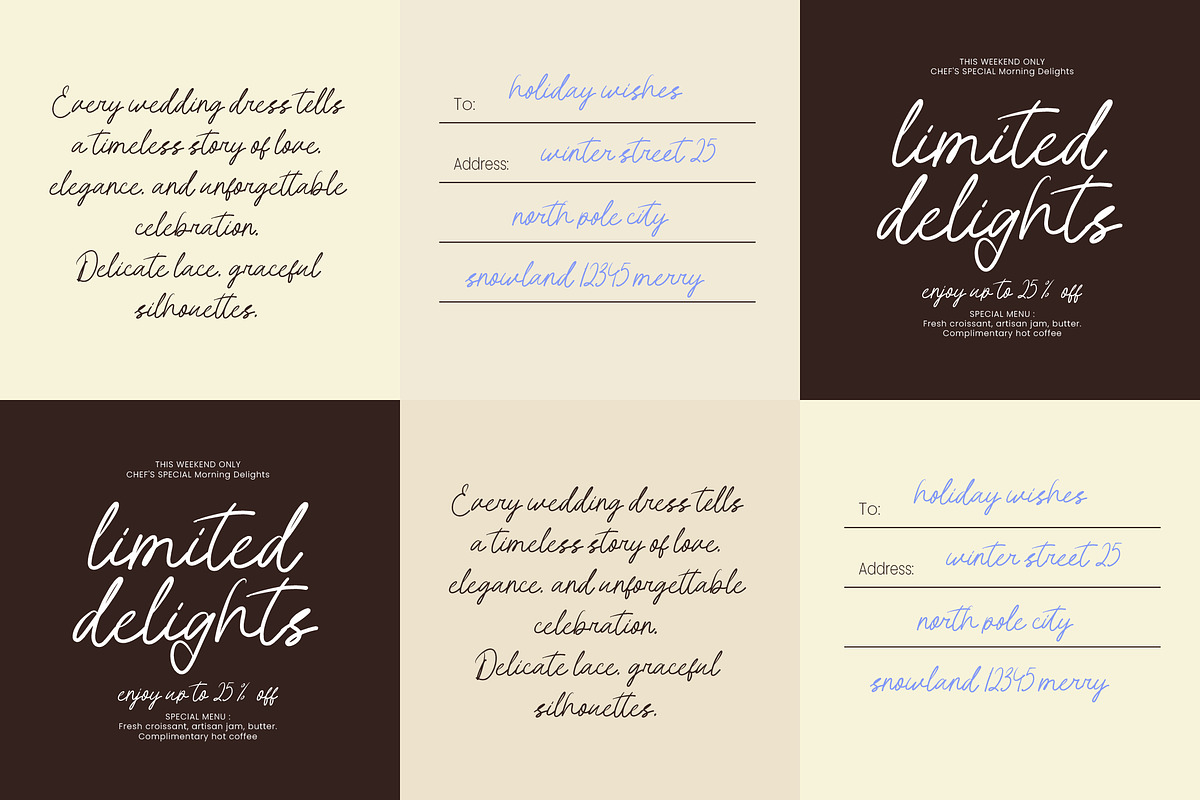 Every wedding dress tells
a timeless story of love.
elegance. and unforgettable
celebration.
Delicate lace. graceful
silhouettes.
To: holiday wishes
Address: winter street 25
north pole city
snowland 12345 merry
THIS WEEKEND ONLY
CHEF'S SPECIAL Morning Delights
limited
delights
enjoy up to 25 % off
SPECIAL MENU :
Fresh croissant, artisan jam, butter.
Complimentary hot coffee
THIS WEEKEND ONLY
CHEF'S SPECIAL Morning Delights
limited
delights
enjoy up to 25 % off
SPECIAL MENU :
Fresh croissant, artisan jam, butter.
Complimentary hot coffee
Every wedding dress tells
a timeless story of love.
elegance. and unforgettable
celebration.
Delicate lace. graceful
silhouettes.
To: holiday wishes
Address: winter street 25
north pole city
snowland 12345 merry